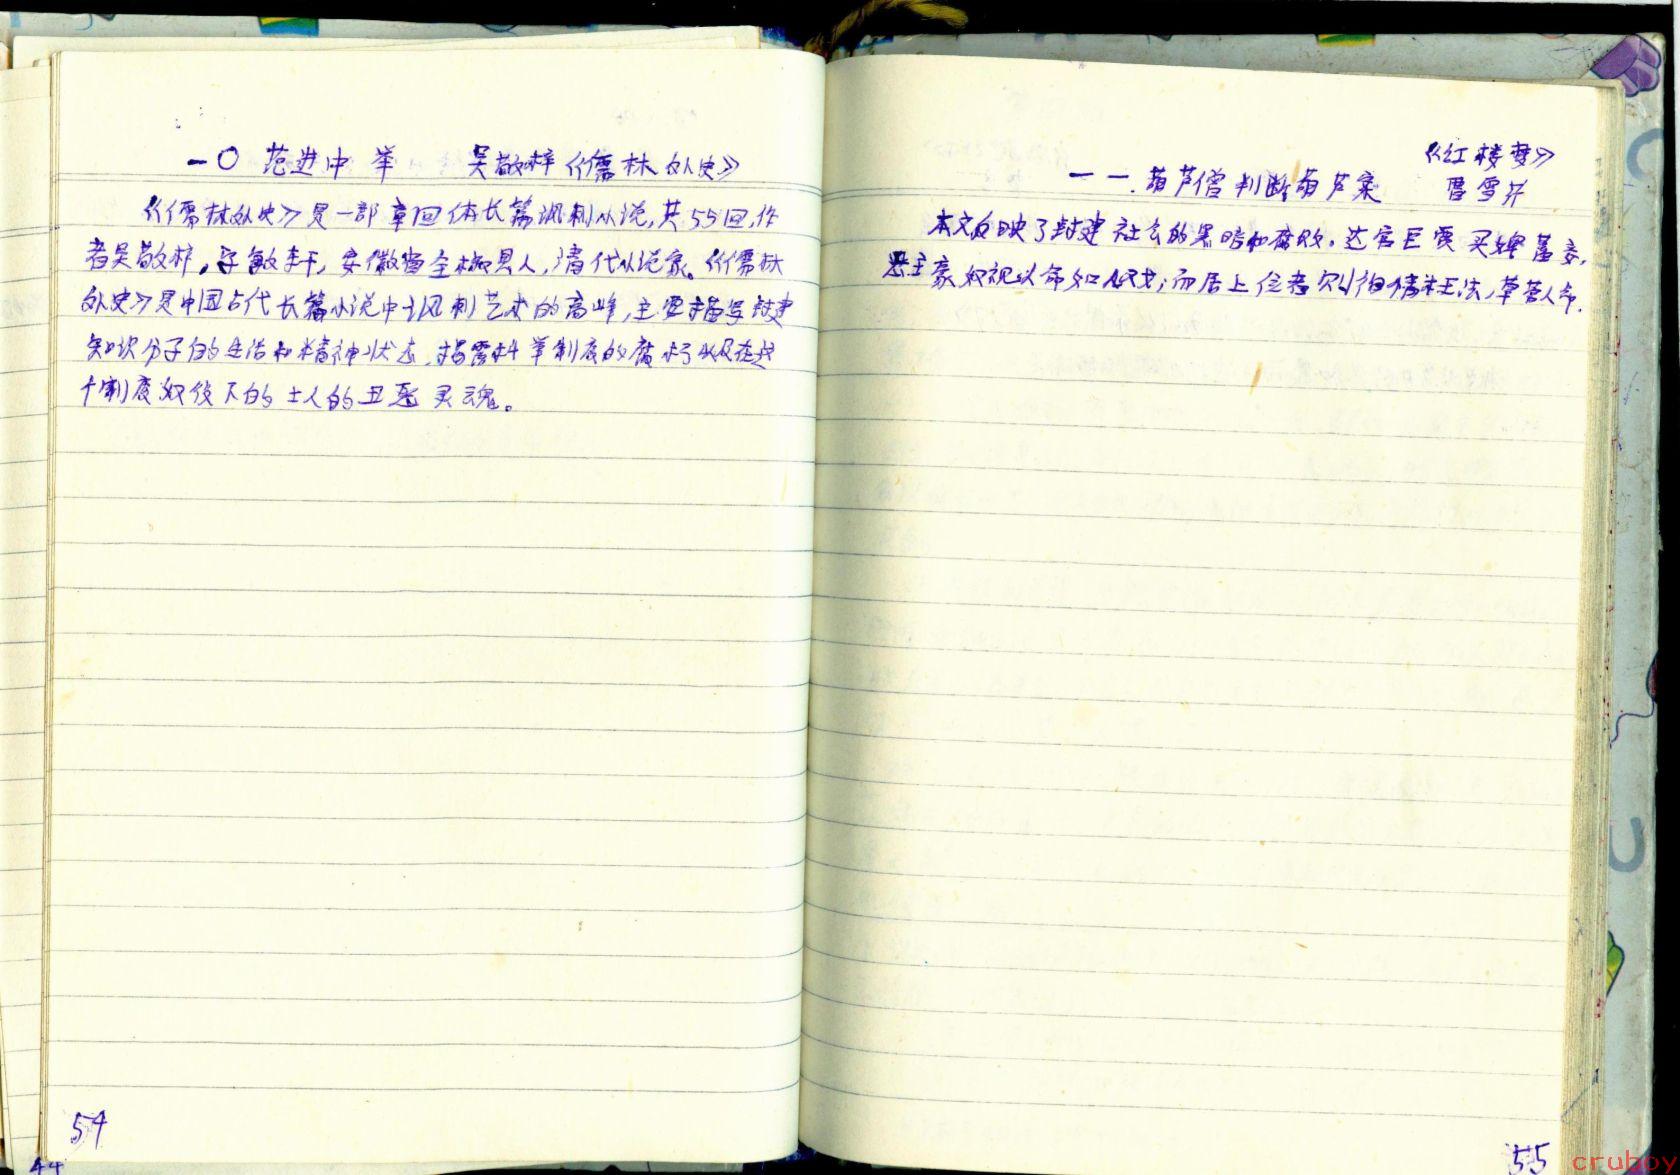 一〇 范进中举 吴敬梓《儒林外史》
《儒林外史》是一部章回体长篇讽刺小说,共55回,作
者吴敬梓,字敏轩,安徽省全椒县人,清代小说家。《儒林
外史》是中国古代长篇小说中讽刺艺术的高峰,主要描写封建
知识分子的生活和精神状态,揭露科举制度的腐朽以及在这
个制度奴役下的士人的丑恶灵魂。
54
44
《红楼梦》
一一.葫芦僧判断葫芦案 曹雪芹
本文反映了封建社会的黑暗和腐败。达官巨贾买婢蓄妾,
恶主豪奴视人命如儿戏;而居上位者则徇情枉法,草菅人命.
55
cruboy